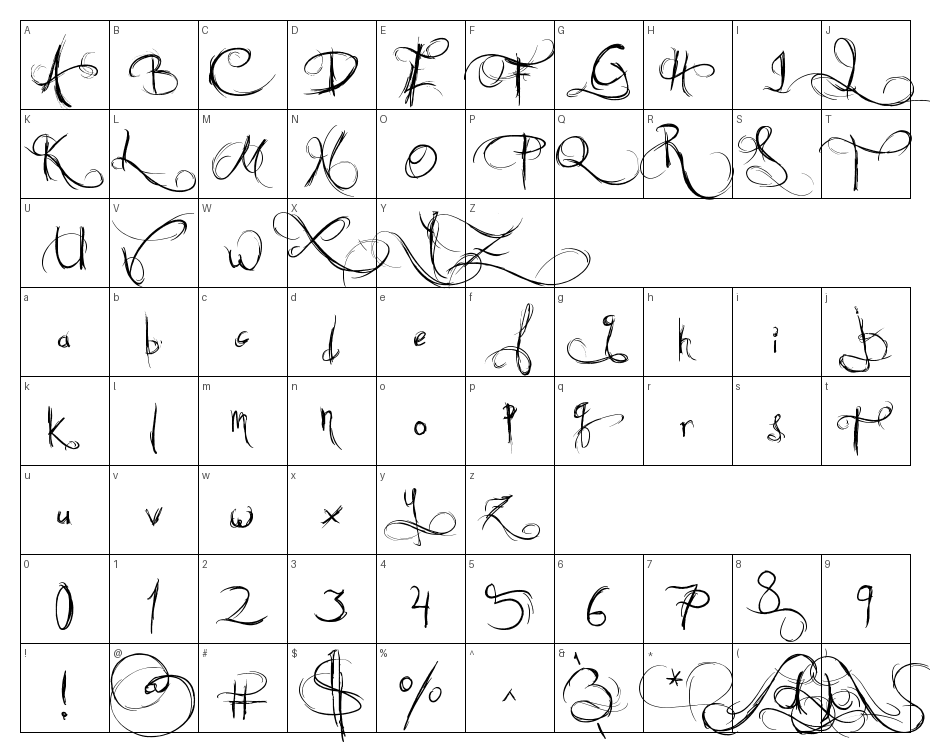 A B C D E F G H I J
A B C D E F G H I J
K L M N O P Q R S T
K L M N O P Q R S T
U V W X Y Z
U V W X Y Z
a b c d e f g h i j
a b c d e f g h i j
k l m n o p q r s t
k l m n o p q r s t
u v w x y z
u v w x y z
0 1 2 3 4 5 6 7 8 9
0 1 2 3 4 5 6 7 8 9
! @ # $ % ^ & * ( )
! @ # $ % ^ & *